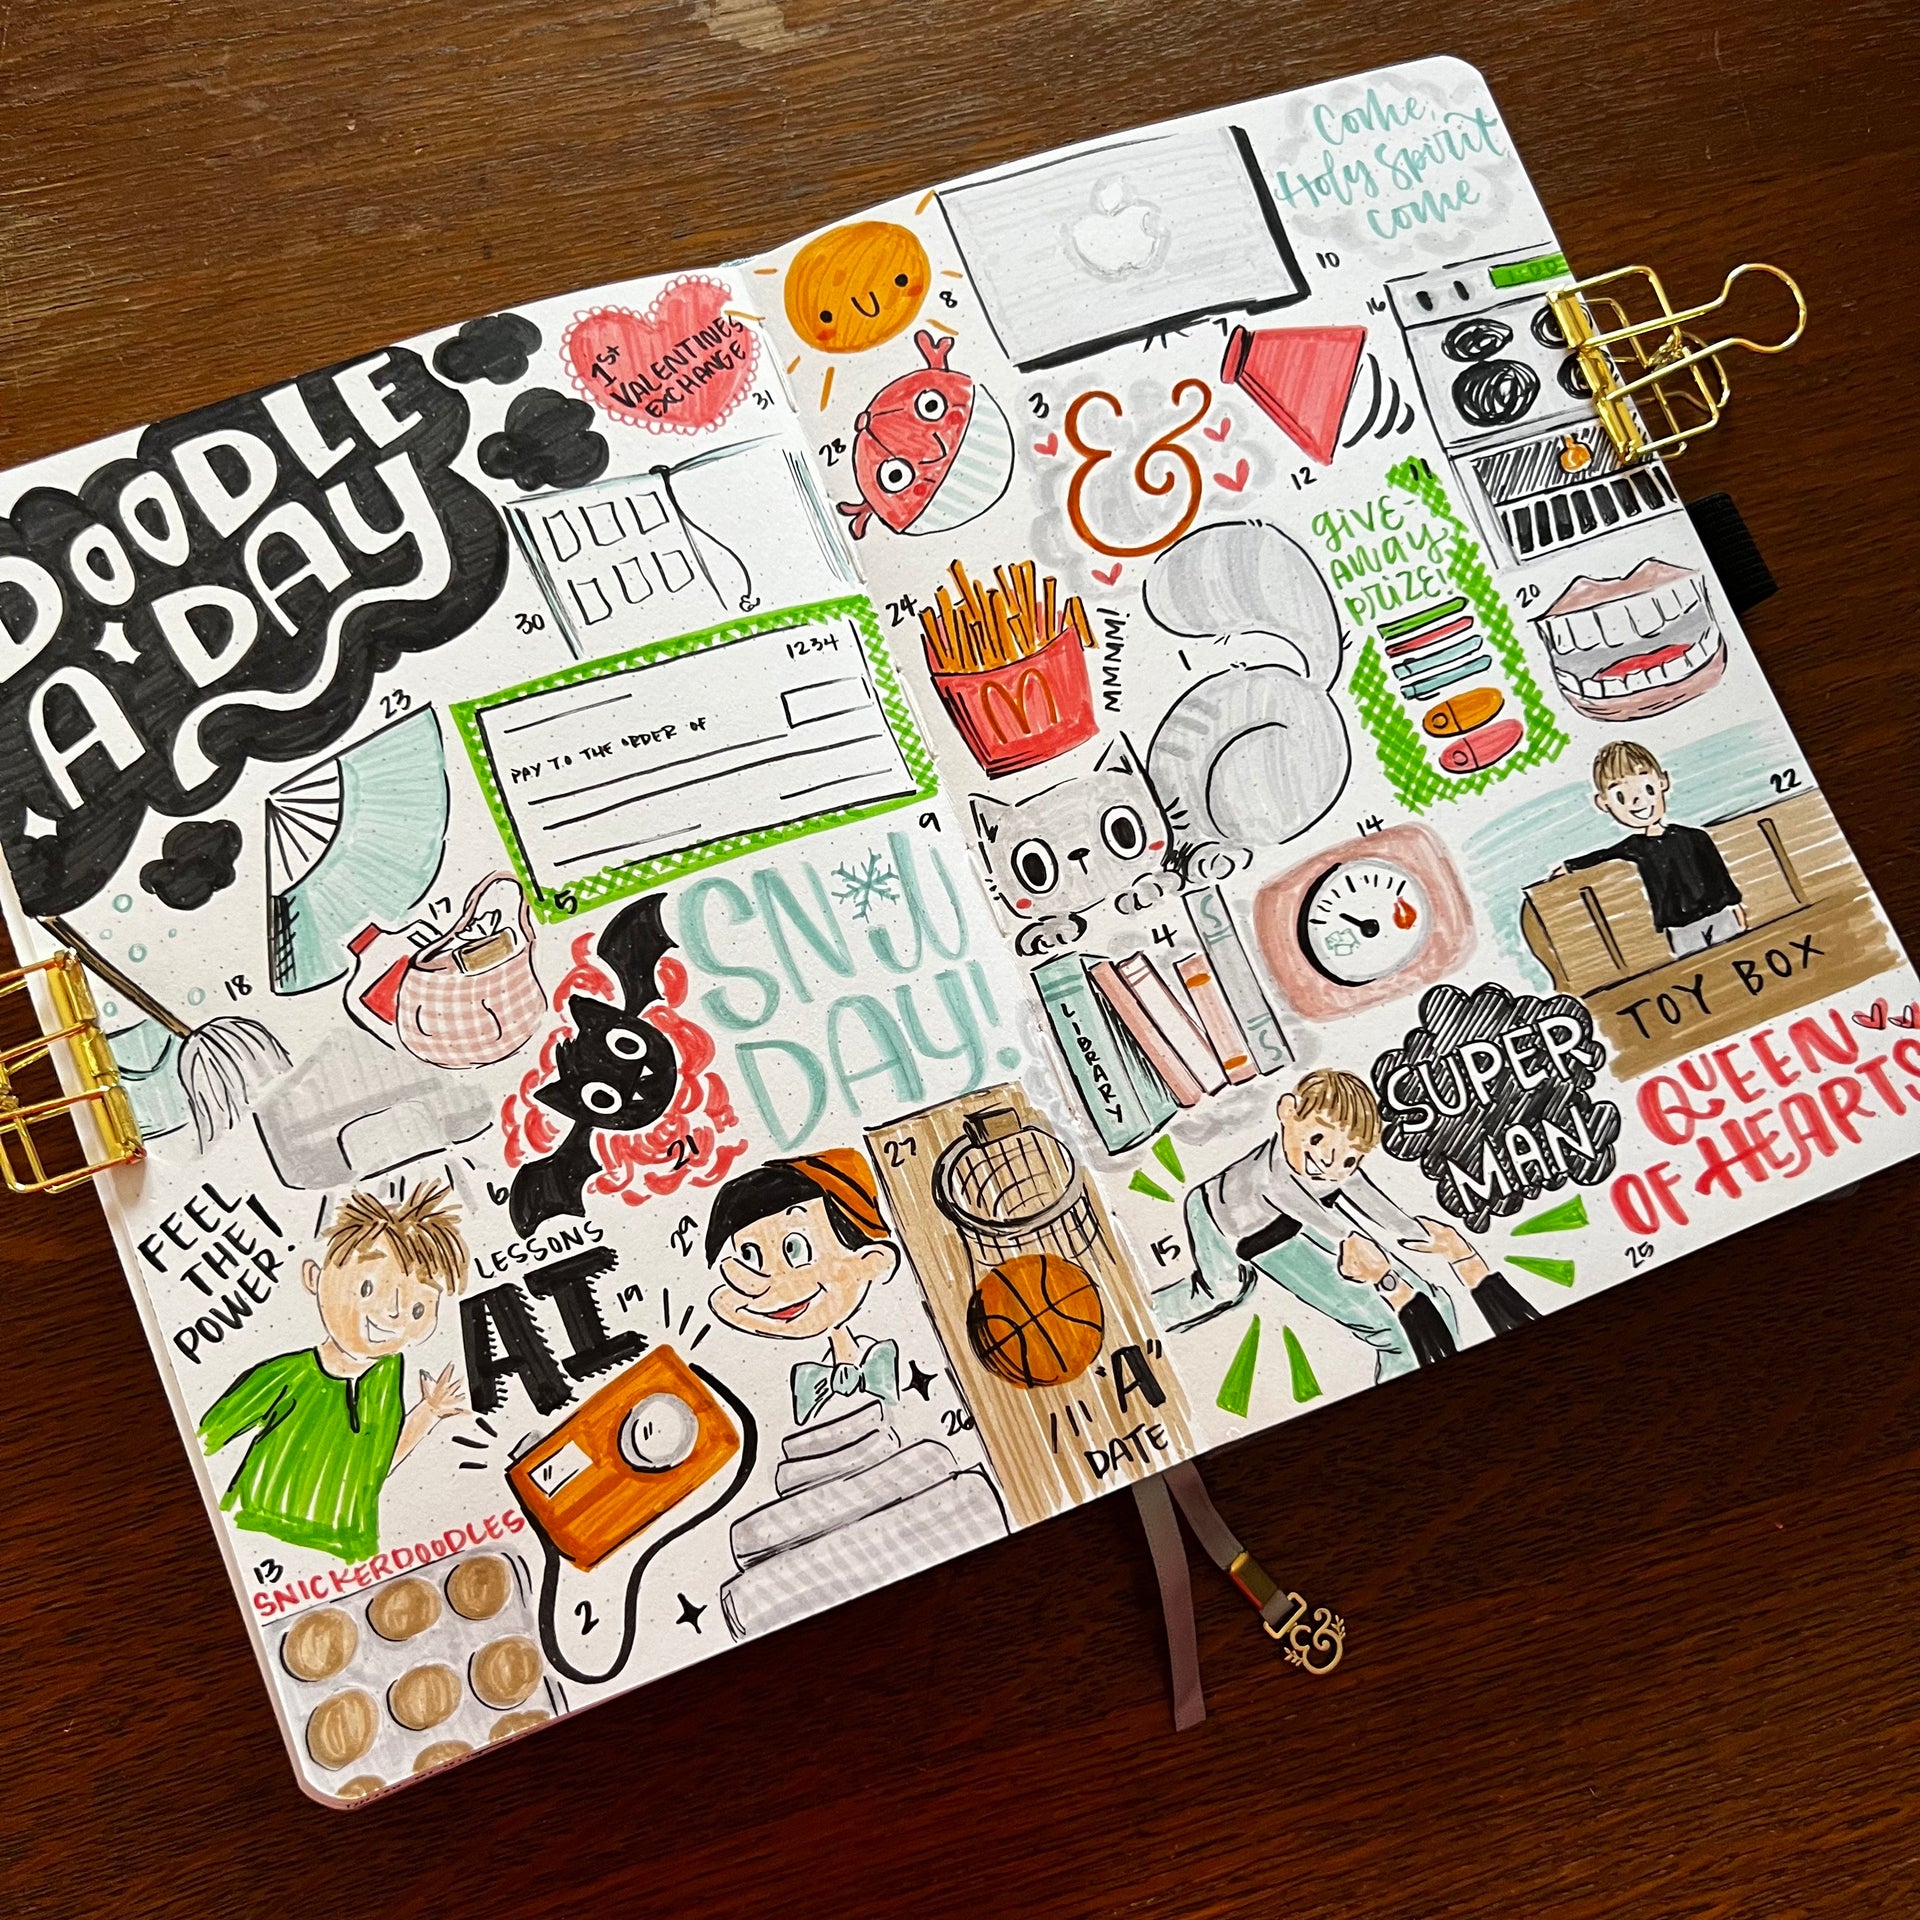 DOODLE
A DAY
1st
VALENTINES
EXCHANGE
31
30
23
1234
PAY TO THE ORDER OF
5
9
SNOW
DAY!
17
18
6
21
FEEL
THE
POWER!
LESSONS
AI
19
29
13
SNICKERDOODLES
2
26
27
"A"
DATE
8
7
10
Come,
Holy Spirit,
come
28
3
&
12
16
1:00
11
GIVE-
AWAY
PRIZE!
24
M
MMMM!
1
20
14
22
TOY BOX
4
LIBRARY
SUPER
MAN
15
QUEEN
OF HEARTS
25